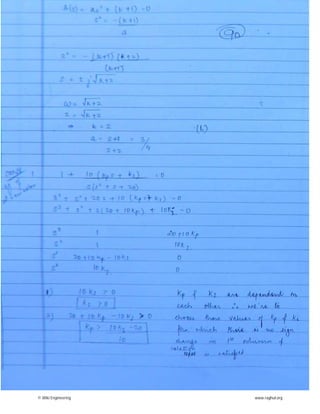 A(s) = as² + (k+1) = 0
s² = -(k+1)
a
9a
s² = - (k+1)(k+2)
(k+1)
s = ± j√k+2
ω = √k+2
2 = √k+2
⇒ k = 2
(b)
a = 2+1 = 3/4
2+2
1 + 10(Kp s + KI) = 0
s(s² + s + 20)
s³ + s² + 20s + 10(Kp s + KI) = 0
s³ + s² + s(20 + 10Kp) + 10KI = 0
s³ 1 20+10Kp
s² 1 10KI
s¹ 20+10Kp-10KI 0
s⁰ 10KI 0
1) 10KI > 0
KI > 0
2) 20 + 10Kp - 10KI > 0
Kp > 10KI - 20
10
Kp & KI are dependent on
each other ∴ we've to
choose those values of Kp & KI
for which there is no sign
change in 1st column of
is satisfied
© Wiki Engineering
www.raghul.org